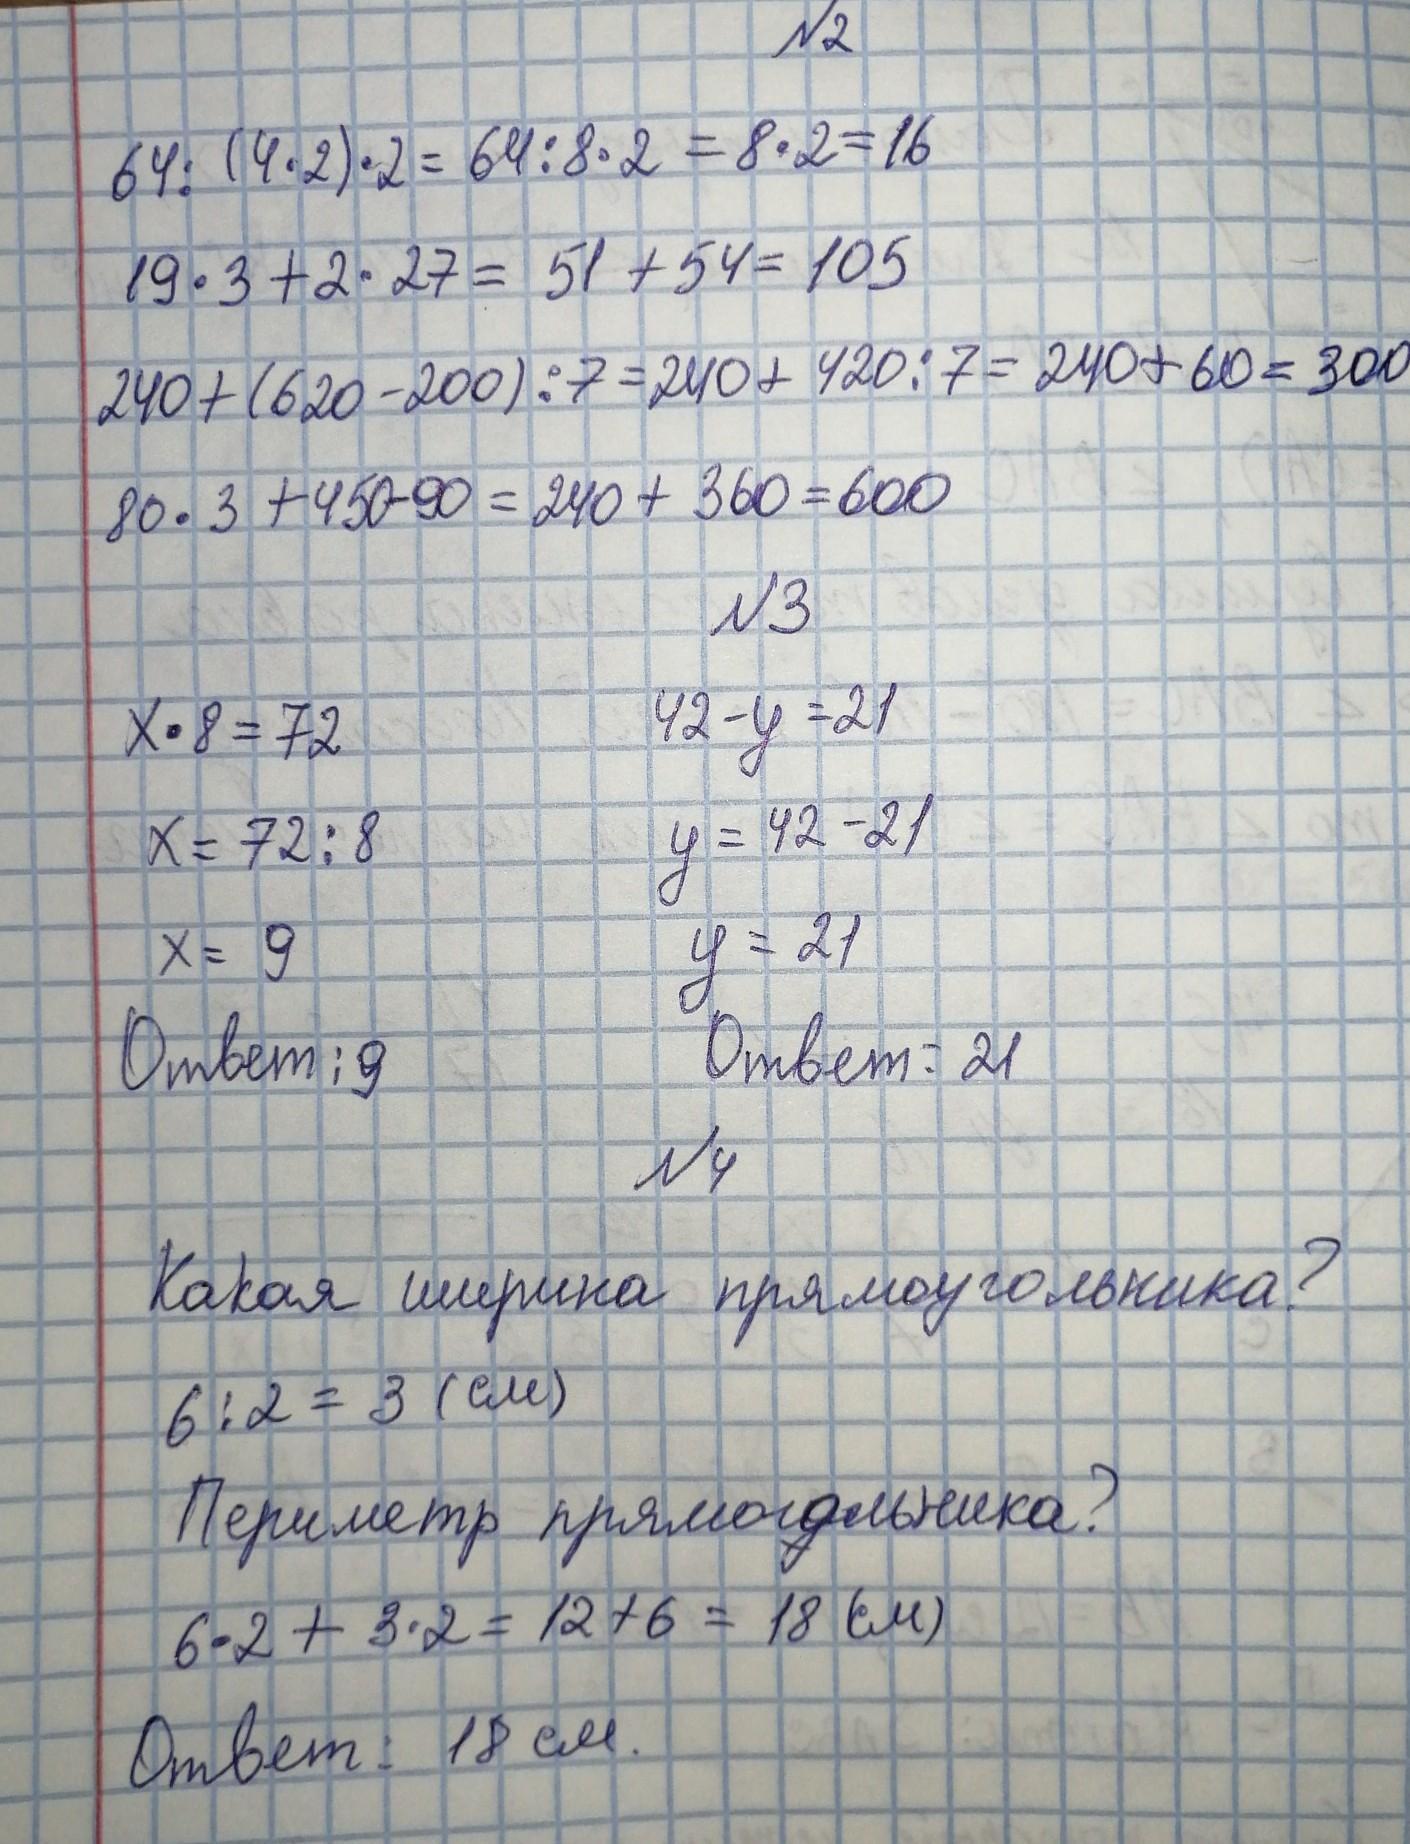 №2
64:(4·2)·2=64:8·2=8·2=16
19·3+2·27=51+54=105
240+(620-200):7=240+420:7=240+60=300
80·3+450-90=240+360=600
№3
x·8=72 42-y=21
x=72:8 y=42-21
x=9 y=21
Ответ:9 Ответ: 21
№4
Какая ширина прямоугольника?
6:2=3(см)
Периметр прямоугольника?
6·2+3·2=12+6=18(см)
Ответ: 18 см.